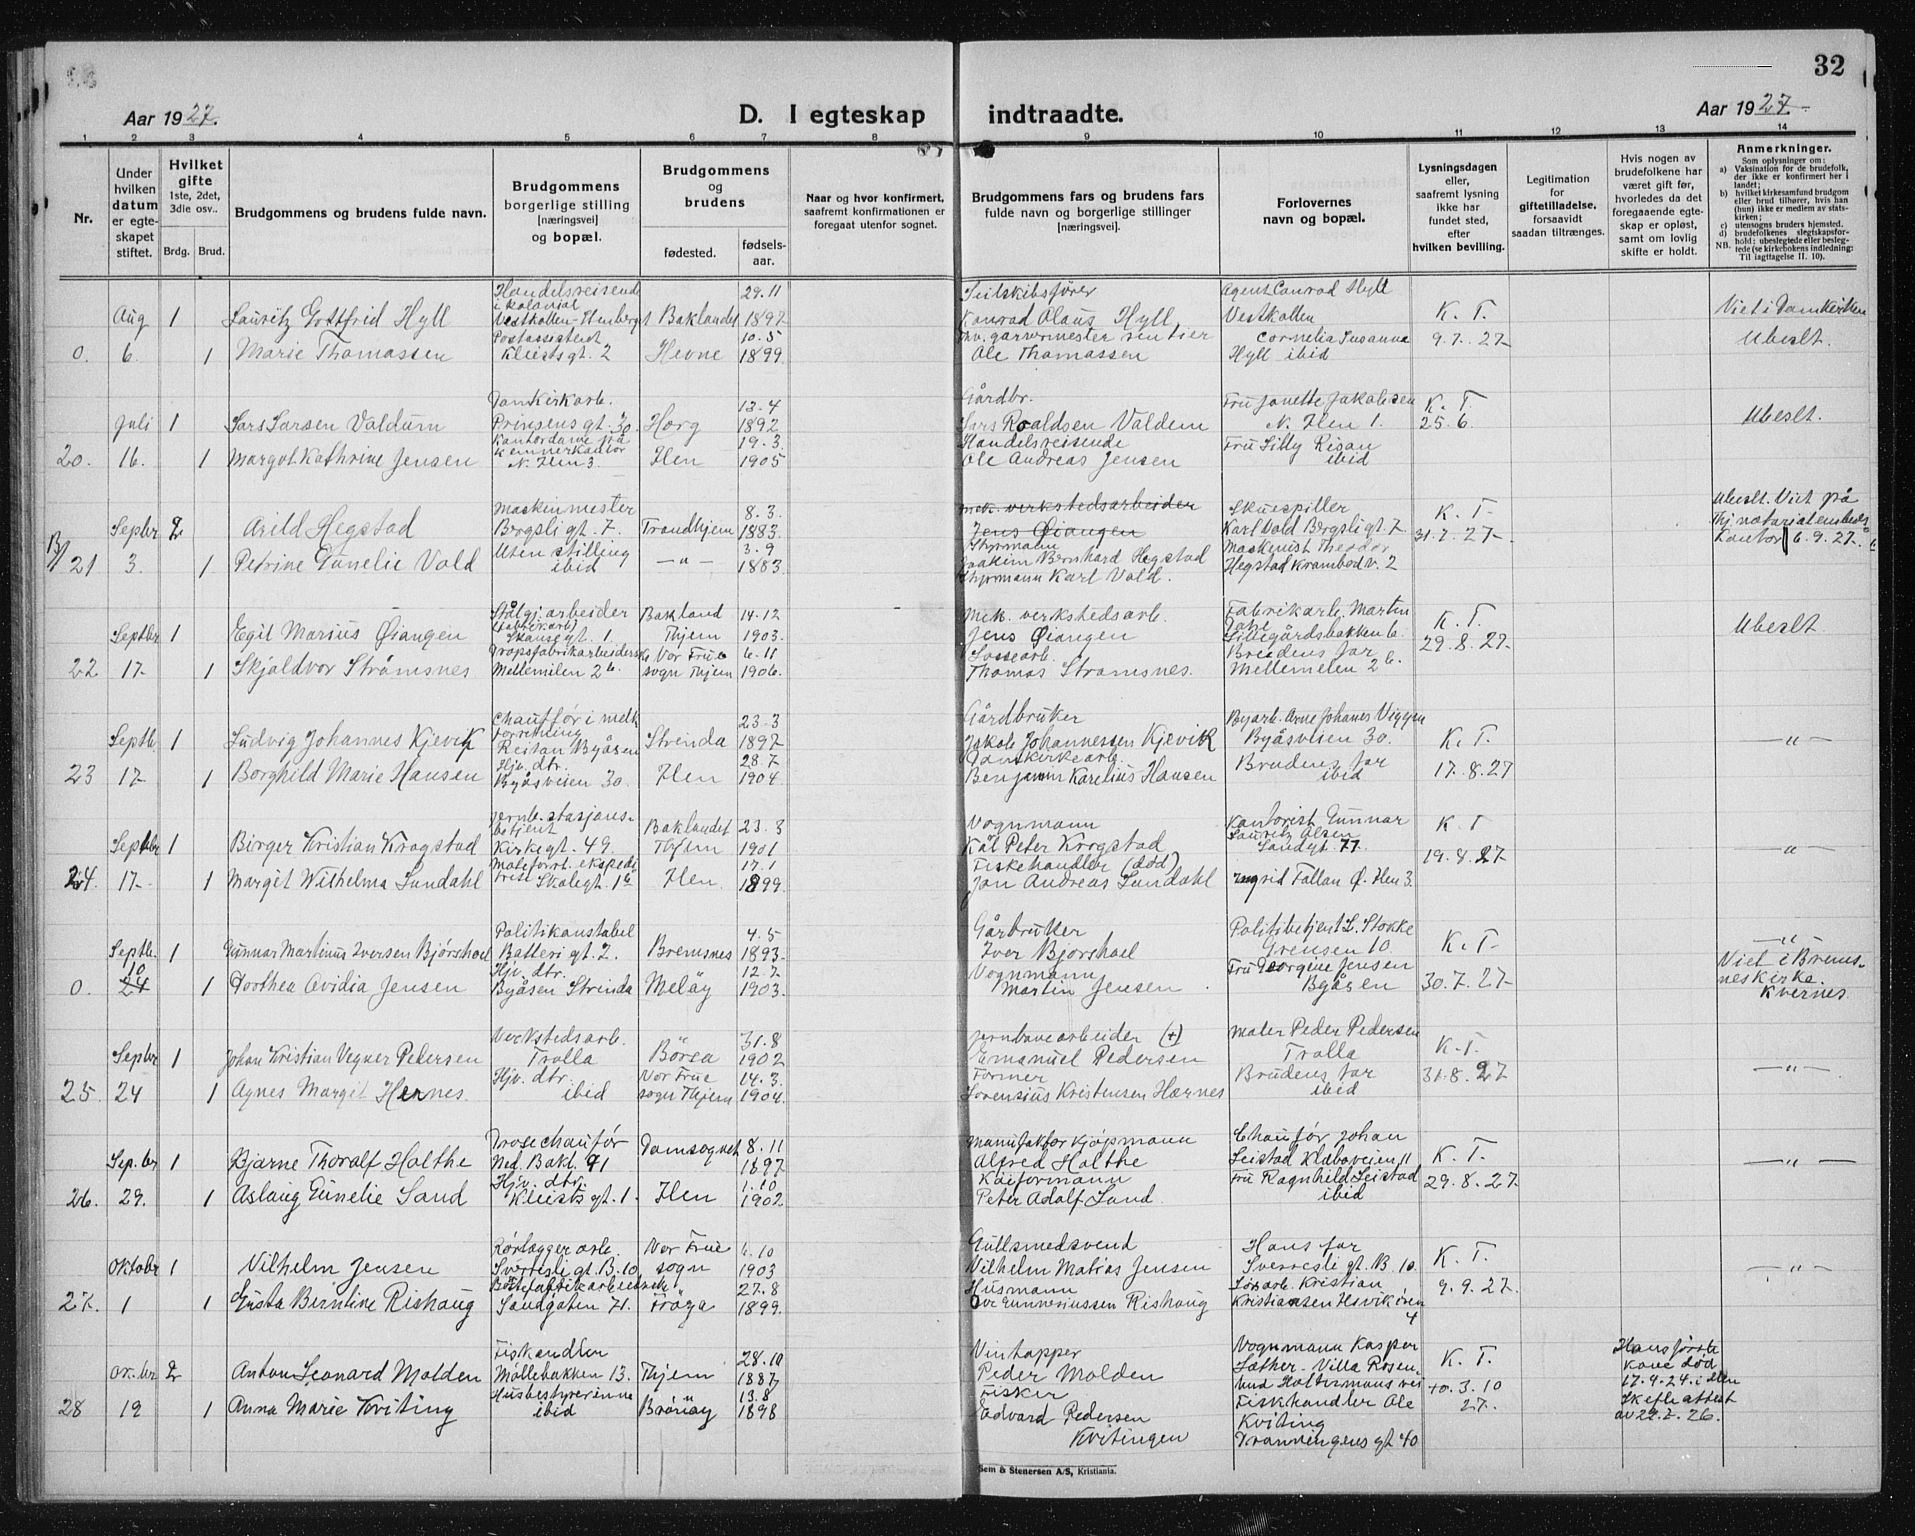 32
Aar 1927.
D. I egteskap indtraadte.
Aar 1927
1 2 3 4 5 6 7 8 9 10 11 12 13 14
Nr.
Under hvilken datum er egteskapet stiftet.
Hvilket gifte 1ste, 2det, 3die osv.. Brdg. Brud.
Brudgommens og brudens fulde navn.
Brudgommens borgerlige stilling [næringsvei] og bopæl.
Brudgommens og brudens fødested. fødselsaar.
Naar og hvor konfirmert, saafremt konfirmationen er foregaat utenfor sognet.
Brudgommens fars og brudens fars fulde navn og borgerlige stillinger [næringsvei].
Forlovernes navn og bopæl.
Lysningsdagen eller, saafremt lysning ikke har fundet sted, efter hvilken bevilling.
Legitimation for giftetilladelse, forsaavidt saadan tiltrænges.
Hvis nogen av brudefolkene har været gift før, hvorledes da det foregaaende egteskap er opløst, samt om lovlig skifte er holdt.
Anmerkninger.
Som oplysninger om:
a) Vaksination for de brudefolk, der ikke er konfirmert her i landet;
b) hvilket kirkesamfund brudgom eller brud tilhører, hvis han (hun) ikke er medlem av statskirken;
c) utensogns bruders hjemsted.
d) brudefolkenes slegtskapsforhold: ubeslegtede eller beslegtede (se kirkebokens indledning: Til iagttagelse II. 10).
NB.
Handelsreisende 29.11 Seilskibsfører Agent Conrad Hyll
i kolonial
Aug 1 Lauritz Gottfrid Hyll Vestkollen Baklandet 1897 Konrad Olaus Hyll Vestkollen K. T. Viet i Domkirken
Postassistent 10.5 garvermester rentier Cornelia Susanna
0. 6. 1 Marie Thomassen Kleists gt. 2 Hevne 1899. Ole Thomassen Hyll ibid 9.7.27 Ubeslt.
Domkirkarb. 13-4 Gårdbr. Fru Janette Jakobsen K. T.
Juli 1 Lars Larsen Valdum Prinsens gt. 30 Horg 1892 Lars Roaldsen Valdem N. Ilen 1. 25.6. Ubeslt.
Kontordame på 19.3 Handelsreisende Fru Silly Risan
kemnerkontor
20. 16. 1 Margot Kathrine Jensen N. Ilen 3 Ilen 1905 Ole Andreas Jensen ibid
Maskinmester 8.3. Mek. verkstedsarbeider Skuespiller Ubeslt. Viet på
Septbr 2 Arild Hegstad Bergsli gt. 7. Trondhjem 1883 Jens Øiangen Karl Vold Bergsli gt. 7 K. T. 31.7.27
Uten stilling 3.9 Styrmann Maskinist Theodor 6.9.27
21 3. 1 Petrine Gunelie Vold ibid -"- 1883 Joakim Bernhard Hegstad Hegstad Krambod v. 2
Styrmann Karl Vold.
Stålgj. arbeider Bakland 14-12 Mek. verkstedsarb. Fabrikarb. Martin K. T. Ubeslt
Septbr 1 Egil Marius Øiangen Skanse gt. 1. Thjem 1903. Jens Øiangen 29.8.27
Dropsfabrikarbeiderske Vor Frue 6-11 Brudens far
22 17. 1 Skjaldvor Strömsnes Mellemilen 2b. sogn Thjem 1906. Thomas Stromsnes. Mellemilen 2b.
Chauffør i melk 23-3 Gårdbruker Byarb. Arne Johanes Viggen
forretning
Septbr 1 Ludvig Johannes Kjevik Reitan Byåsen Strinda 1897 Jakob Johannessen Kjevik Byåsveien 30. K. T. -"-
Hjv. dtr. 28-7 Domkirkearb. Brudens far
23 17 1 Borghild Marie Hansen Byåsveien 30. Ilen 1904 Benjamin Karelius Hansen ibid 17.8.27
Jernb. stasjons- Baklandet 23-3 Vognmann Kontorist Gunnar K. T
betjent
Septbr 1 Birger Kristian Krogstad Kirkegt. 49. Thjem 1901 Kål Peter Krogstad Lauritz Olsen Sandgt. 77 19.8.27 -"-
17.1 Fiskehandler (død)
24. 17. 1 Margit Wilhelma Sundahl Skolegt. 1b Ilen 1899. Jon Andreas Sundahl Ingrid Fallan Ø. Ilen 3.
Politikonstabel 4.5 Gårbruker Politibetjent L. Stokke
Septbr. 1 Gunnar Martinus Iversen Bjørshoel Batteri gt. 2. Bremsnes 1893. Iver Bjorshoel Grensen 10 K. T. -"-
10 Hjv. dtr. 12.7 Vognmann Fru Georgine Jensen Viet i Bremsnes kirke.
0. 24 1 Dorthea Ovidia Jensen Byåsen Strinda Meløy 1903. Martin Jensen Byåsen 30.7.27 Kvernes.
Verkstedsarb. 31.8 Jernbanearbeider (+) Maler Peder Pedersen
Septbr 1 Johan Kristian Vegner Pedersen Trolla Börsa 1902 Emanuel Pedersen Trolla K.T. -"-
Hjv. dtr. Vor Frue 14.3. Former Brudens far 31.8.27
25. 24 1 Agnes Margit Hernes. ibid sogn Thjem 1904. Lorensius Kristensen Hærnes ibid
Drosechaufør Domsognet 8.11 Manufaktor kjøpmann Chaufør Johan
Sep.br 1 Bjarne Thoralf Holthe Ned. Bakl. 91 1897 Alfred Holthe Leistad Klæboveien 11 K. T. -"-
Hjv. dtr. 1.10 Kaiformann Fru Ragnhild Leistad
26. 29. 1 Aslaug Gunelie Sand Kleists gt. 1. Ilen 1902 Peter Adolf Sand ibid 29.8.27
Rörlegger arb. Vor Frue 6.10 Gullsmedsvend Hans far K. T.
Oktobr 1 Vilhelm Jensen Sverresli gt. B. 10 sogn 1903 Vilhelm Matias Jensen Sverresli gt. B 10. -"-
27.8 Husmann Kristian
27. 1 1 Gusta Berntine Rishaug Sandgaten 71. Fröya 1899. Rishaug Kristiansen 9.9.27 4
Fiskandler 28.10 Vintapper Vognmann Kasper Hans første
Ok.br 2 Anton Leonard Molden Møllebakken 13. Thjem 1887 Peder Molden Sæther. Villa Rosenlund K. T. kone død
Husbestyrerinne 13.8 Fisker 17.9.24 i Ilen
28 19 1 Anna Marie Kviting ibid Brönöy 1898 Edvard Pedersen Kvitingen Fiskhandler Ole Kviting +0.3.10 27. Skifteattest av
Tranningens gt 40
Sem & Stenersen A/S, Kristiania.